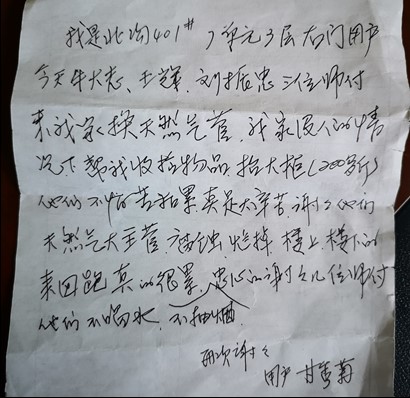 我是北沟401# 7单元3层右门用户
今天牛大志、王辉、刘振忠三位师付
来我家换天然气管，我家没人的情
况下帮我收拾物品，抬大柜(200多斤)
他们不怕苦和累真是太辛苦，谢谢他们
天然气大主管，腐蚀，烂掉，楼上楼下的
来回跑真的很累，忠心的谢谢几位师付
他们不喝水，不抽烟。
再次谢谢
用户 甘秀菊